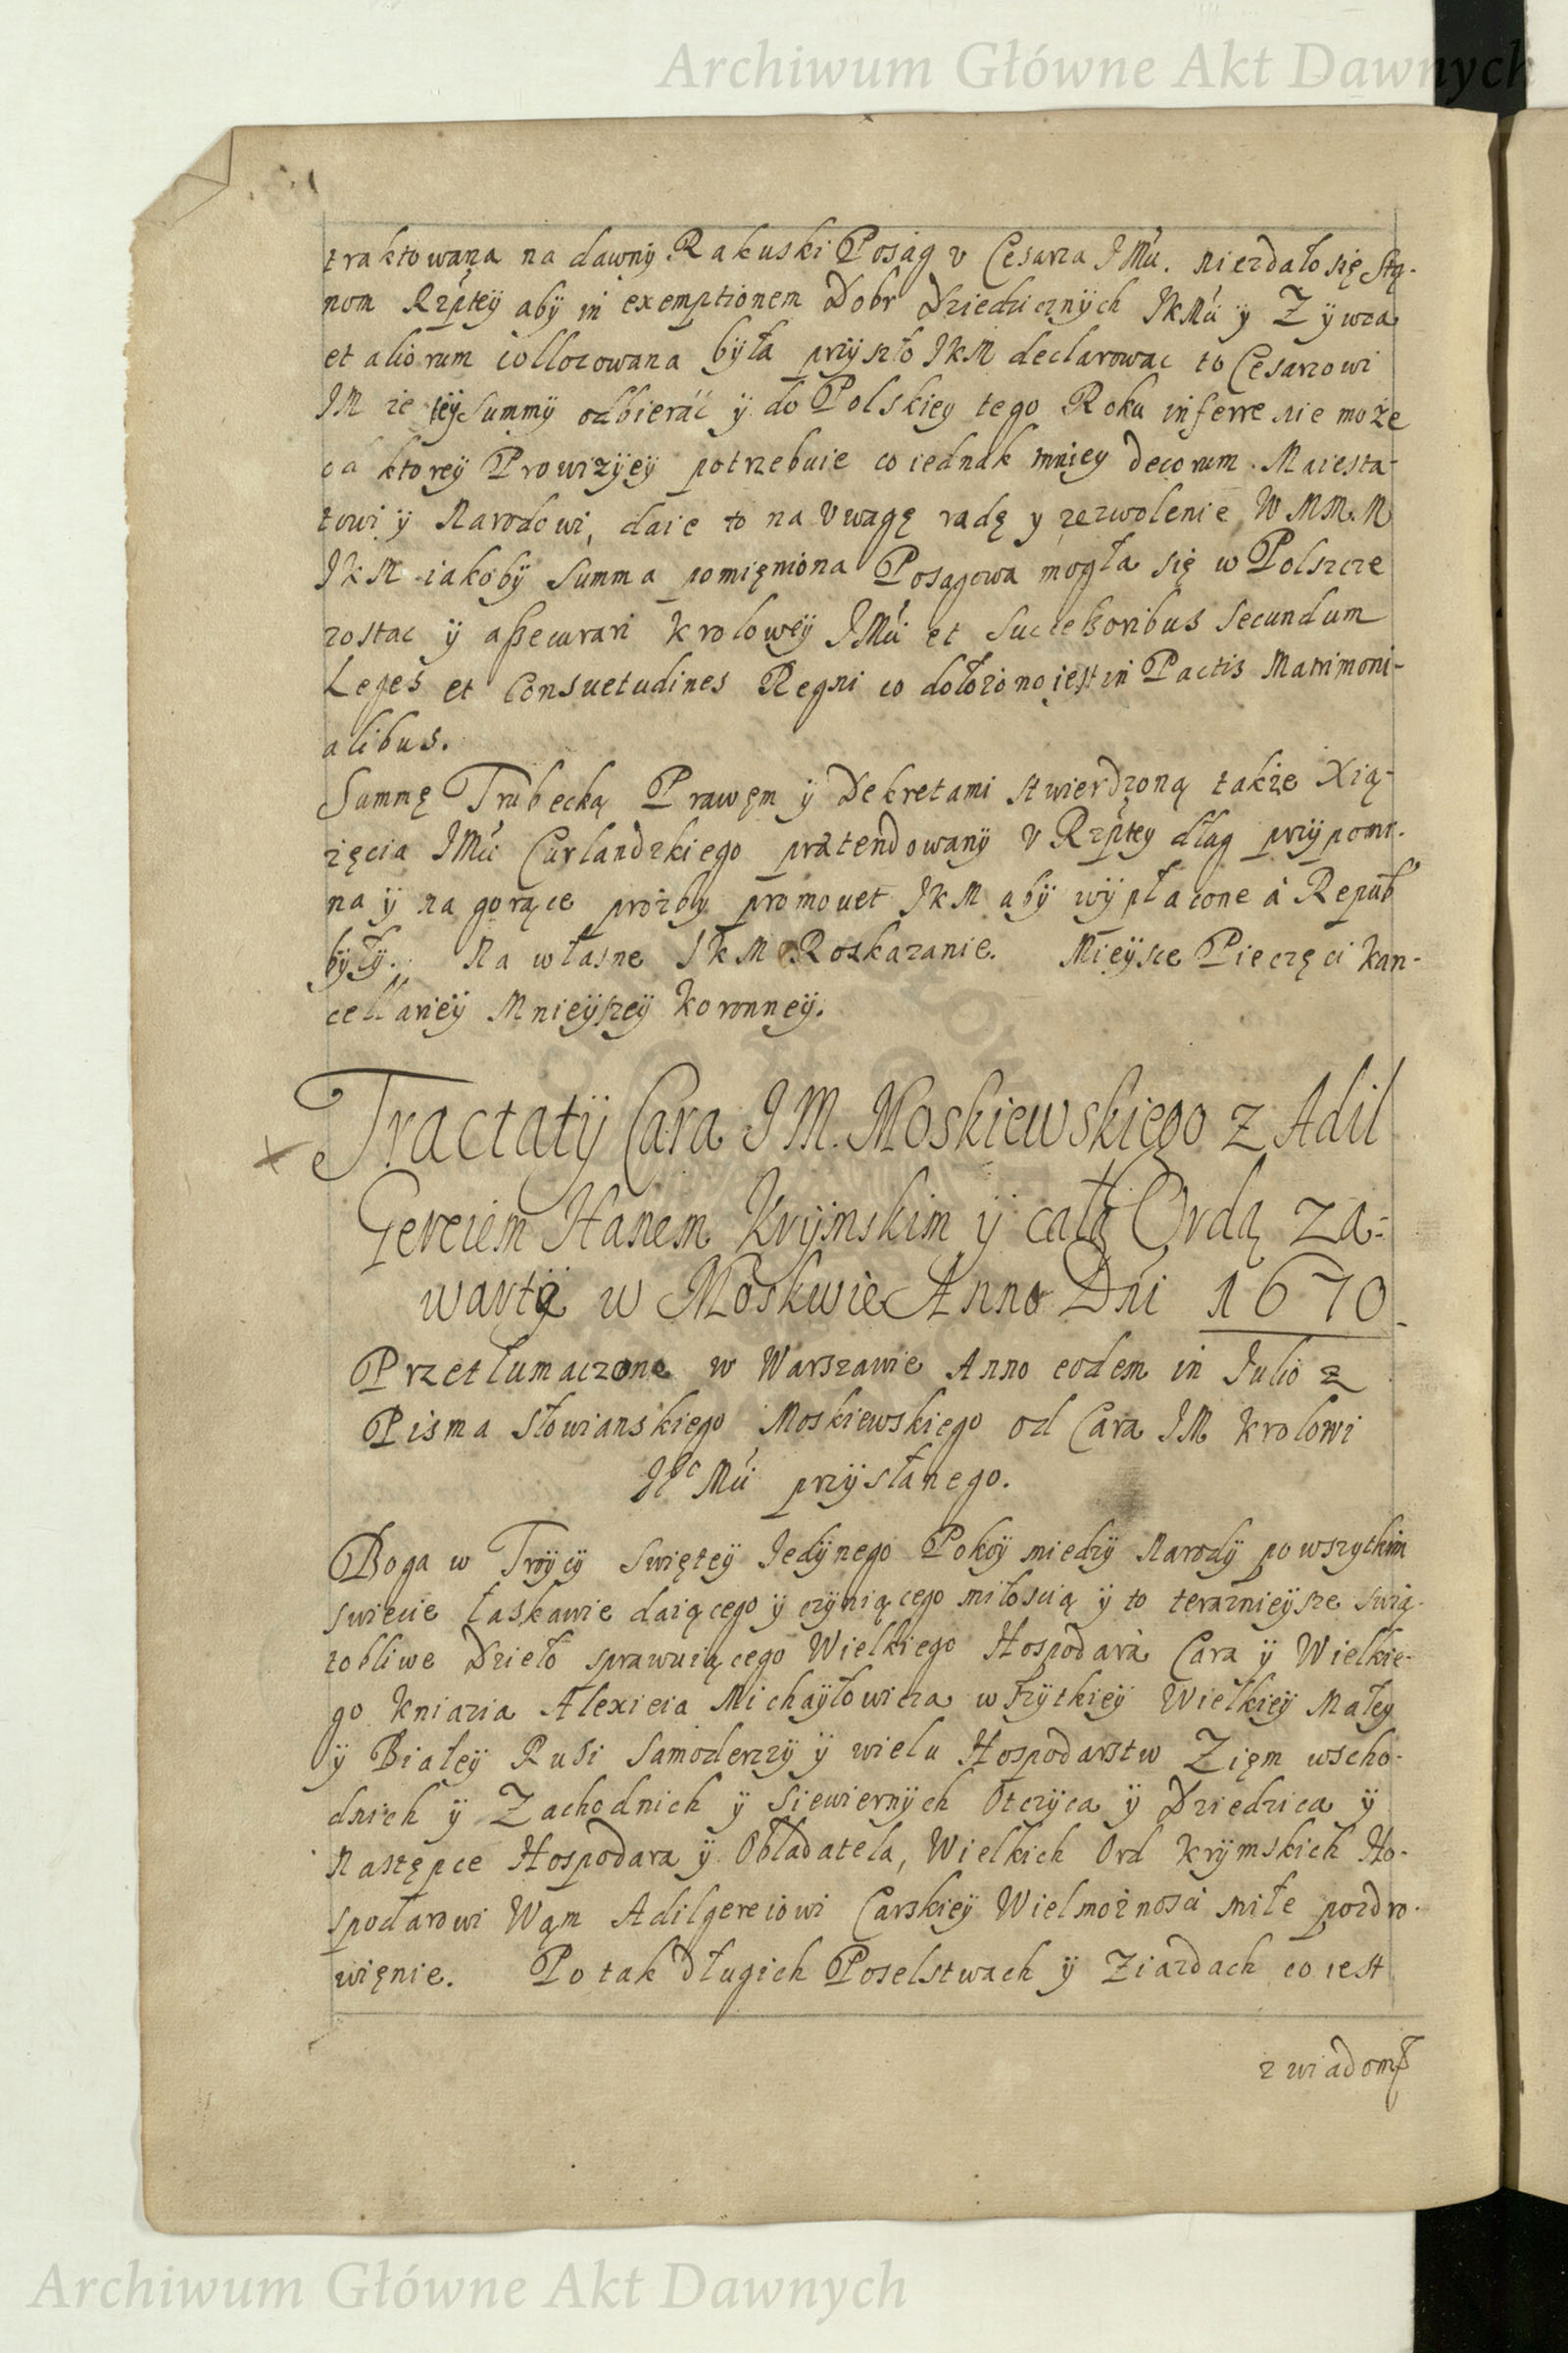 Archiwum Główne Akt Dawnych
traktowana na dawny Rakuski Posag v Cesarza JMci. niezdało się Stą-
nom Rzptey aby in exemptionem Dobr Dziedzicznych JKMci y Zywca
et aliorum collocowana była przyszło JKM declarowac to Cesarzowi
JM ze tey Summy odbierać y do Polskiey tego Roku inferre nie może
od ktorey Prowizyey potrzebuie co iednak mniey decorum Maiesta-
towi y Narodowi, daie to na Vwagę radę y zezwolenie WMM.M
JKM iakoby Summa pomięniona Posagowa mogła się w Polszcze
zostac y assecurari Krolowey JMci et Successoribus Secundum
Leges et Consuetudines Regni co dołożono iest in Pactis Matrimoni-
alibus.
Summę Trubecką Prawęm y Dekretami stwierdzoną także Xią-
zięcia JMci Curlandzkiego prætendowany v Rzptey dług przypomi-
na y na gorące prozby promouet JKM aby wypłacone à Repub
były. Na własne JKM Roskazanie. Mieysce Pieczęci Kan-
cellariey Mnieyszey Koronney.
Tractaty Cara JM. Moskiewskiego z Adil
Gereiem Hanem Krymskim y całą Ordą za-
warty w Moskwie Anno Dni 1670.
Przetłumaczone w Warszawie Anno eodem in Julio z
Pisma Słowianskiego Moskiewskiego od Cara JM Krolowi
JeoMci przysłanego.
Boga w Troycy Swiętey Jedynego Pokoy miedzy Narody po wszytkim
swiecie łaskawie daiącego y czyniącego miłoscią y to teraznieysze swią-
tobliwe Dzieło sprawuiącego Wielkiego Hospodara Cara y Wielkie-
go Kniazia Alexieia Michayłowicza wszytkiey Wielkiey Małey
y Białey Rusi Samoderzcy y wielu Hospodarstw Zięm wscho-
dnich y Zachodnich y Siewiernych Otczyca y Dziedzica y
Następce Hospodara y Obladatela, Wielkich Ord Krymskich Ho-
spodarowi Wąm Adilgereiowi Carskiey Wielmożnosci miłe pozdro-
więnie. Po tak długich Poselstwach y Ziazdach co iest
z wiadom
Archiwum Główne Akt Dawnych